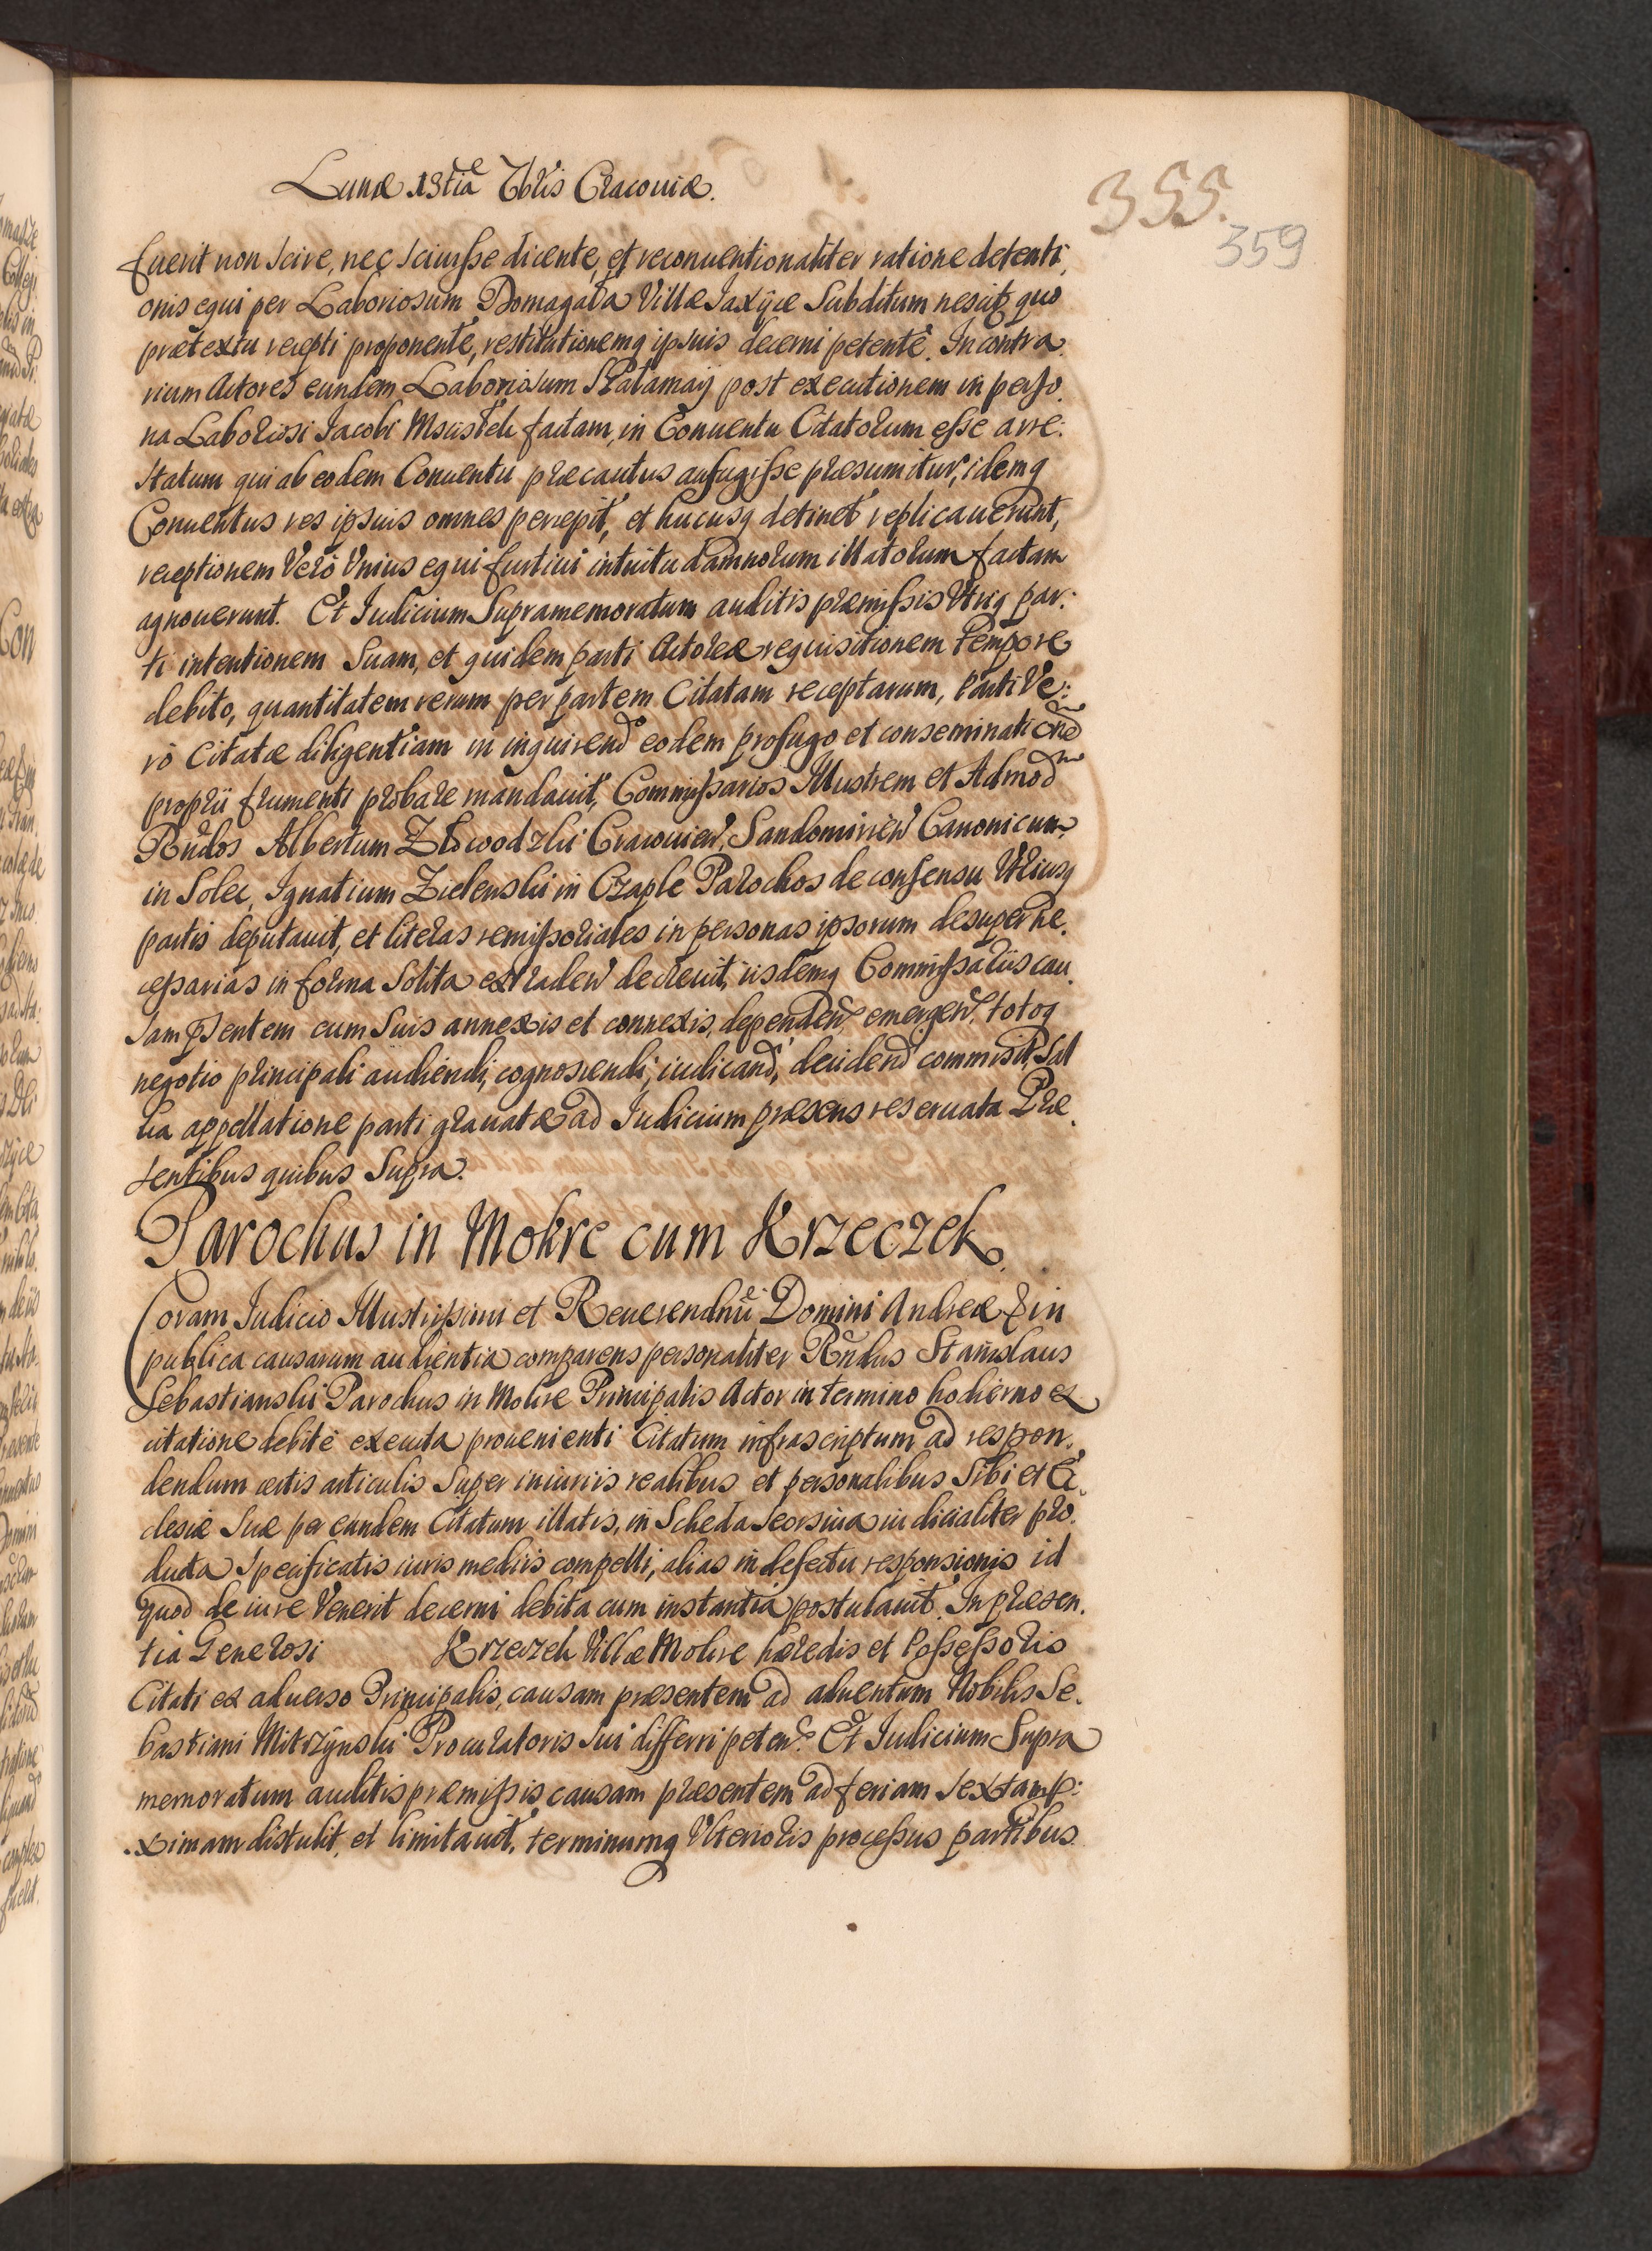 Lunæ 13tia 7bris Cracouiæ.
355.
359
fuerit non scire, nec sciuisse dicente, et reconuentionaliter ratione detenti,
onis equi per Laboriosum Domagała Villæ Jaxÿce Subditum nescit quo
prætextu recepti proponente, restitutionemq ipsuis decerni petente. In contra.
rium Actores eundem Laboriosum post executionem in perso.
na Laboriosi Jacobi factam, in Conuentu Citatorum esse arre:
statum qui ab eodem Conuentu præcautus aufugisse præsumitur, idemq
Conuentus res ipsuis omnes percepit, et hucusq detinet replicauerunt,
receptionem Verò Vnius equi furtiui intuitu damnorum illatorum factam
agnouerunt. Et Iudicium Supramemoratum auditis præmissis Vtriq par:
ti intentionem Suam, et quidem parti Actoreæ requisitionem tempore
debito, quantitatem rerum per partem Citatam receptarum, Parti Ve:
rò Citatæ diligentiam in inquirend eodem profugo et conseminatione
proprii frumenti probare mandauit, Commissarios Illustrem et Admod
Rndos Albertum Cracouien, Sandomirien Canonicum
in Solec, Ignatium Zielenski in Czaple Parochos de consensu Vtriusq
partis deputauit, et literas remissoriales in personas ipsorum desuper ne.
cessarias in forma Solita extraden decreuit, iisdemq Commissariis cau.
sam psentem cum Suis annexis et connexis, dependen, emergen, totoq
negotio principali audiendi, cognoscendi, iudicand, decidend commisit, Sal
ua appellatione parti grauatæ ad Iudicium præsens reseruata Præ.
sentibus quibus Supra.
Parochus in Mokre cum Krzeczek.
Coram Iudicio Illustrissimi et Reuerendmi Domini Andreæ & in
publica causarum audientia comparens personaliter Rndus Stanislaus
Sebastianski Parochus in Mokre Principalis Actor in termino hodierno ex
citatione debitè executa prouenienti Citatum infrascriptum ad respon.
dendum certis articulis Super iniuriis realibus et personalibus Sibi et Ec.
clesiæ Suæ per eundem Citatum illatis, in Scheda Seorsiua iudicialiter pro.
ducta Specificatis iuris mediis compelli, alias in defectu responsionis id
quod de iure Venerit decerni debita cum instantia postulauit. In præsen.
tia Generosi Krzeczek Villæ Mokre hæredis et Possessoris
Citati ex aduerso Principalis, causam præsentem ad aduentum Nobilis Se.
bastiani Mitrzynski Procuratoris Sui differri peten. Et Iudicium Supra
memoratum auditis præmissis causam præsentem ad feriam sextam p:
ximam distulit, et limitauit, terminumq Vlterioris processus partibus